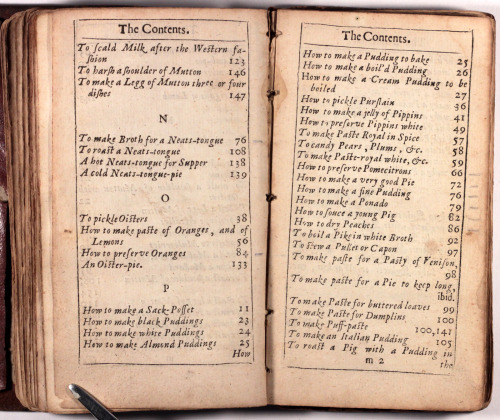 The Contents.
To scald Milk after the Western fa-
shion 123
To harsh a shoulder of Mutton 146
To make a Legg of Mutton three or four
dishes 147
N
To make Broth for a Neats-tongue 76
To roast a Neats-tongue 108
A hot Neats-tongue for Supper 138
A cold Neats-tongue-pie 139
O
To pickle Oisters 38
How to make paste of Oranges, and of
Lemons 56
How to preserve Oranges 84
An Oister-pie. 133
P
How to make a Sack-Posset 11
How to make black Puddings 23
How to make white Puddings 24
How to make Almond Puddings 25
How
The Contents.
How to make a Pudding to bake 25
How to make a boil'd Pudding 26
How to make a Cream Pudding to be
boiled 27
How to pickle Purslain 36
How to make a jelly of Pippins 41
How to preserve Pippins white 49
To make Paste Royal in Spice 57
To candy Pears, Plums, &c. 58
To make Paste-royal white, &c. 59
How to preserve Pomecitrons 66
How to make a very good Pie 72
How to make a fine Pudding 76
How to make a Ponado 79
How to souce a young Pig 82
How to dry Peaches 86
To boil a Pike in white Broth 92
To stew a Pullet or Capon 97
To make paste for a Pasty of Venison,
98
To make paste for a Pie to keep long,
ibid.
To make Paste for buttered loaves 99
To make Paste for Dumplins 100
To make Puff-paste 100,141
To make an Italian Pudding 105
To roast a Pig with a Pudding in
m 2 the